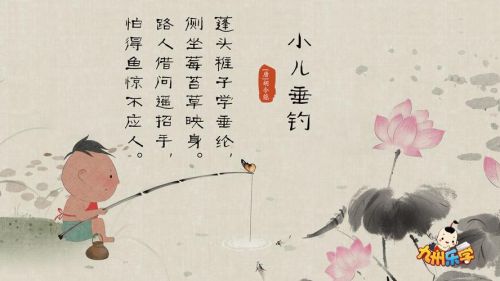 小儿垂钓
(唐)胡令能
蓬头稚子学垂纶,
侧坐莓苔草映身。
路人借问遥招手,
怕得鱼惊不应人。
九州乐字